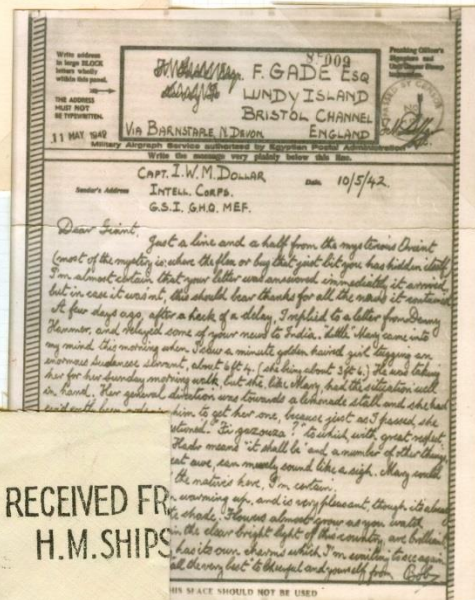 Write address
in large BLOCK
letters wholly
within this panel.
THE ADDRESS
MUST NOT
BE TYPEWRITTEN.
11 MAY 1942
8-009
F. GADE ESQ
LUNDY ISLAND
BRISTOL CHANNEL
VIA BARNSTAPLE, N. DEVON ENGLAND
Officer's
Signature and
Military Airgraph Service authorized by Egyptian Postal Administration
Write the message very plainly below this line.
CAPT. I. W. M. DOLLAR
Sender's Address INTELL. CORPS. Date. 10/5/42.
G.S.I. G.H.Q. MEF.
Dear Giant,
Just a line and a half from the mysterious Orient
(most of the mystery is: where the flea or bug that just bit you has hidden itself)
I'm almost certain that your letter was answered immediately it arrived,
but in case it wasn't, this should bear thanks for all the news it contained.
A few days ago, after a heck of a delay, I replied to a letter from Denny
Hanmer, and relayed some of your news to India. "Little" Mary came into
my mind this morning when I saw a minute golden haired girl tugging an
enormous Sudanese servant, about 6ft 4. (she being about 3ft 6.) He was taking
her for her Sunday morning walk, but she, like Mary, had the situation well
in hand. Her general direction was towards a lemonade stall and she had
him to get her one, because just as I passed, she
"Fi gazouza?" to which with great respect
Hadr means "it shall be" and a number of other things
great awe can merely sound like a sigh. Mary would
the natives here, I'm certain.
warming up, and is very pleasant, though it's about
the shade. Flowers almost grow as you watch
in the clear bright light of this country, are brilliant
has its own charms which I'm waiting to see again
all the very best to Cheerful and yourself from
RECEIVED FR
H.M. SHIPS
THIS SPACE SHOULD NOT BE USED